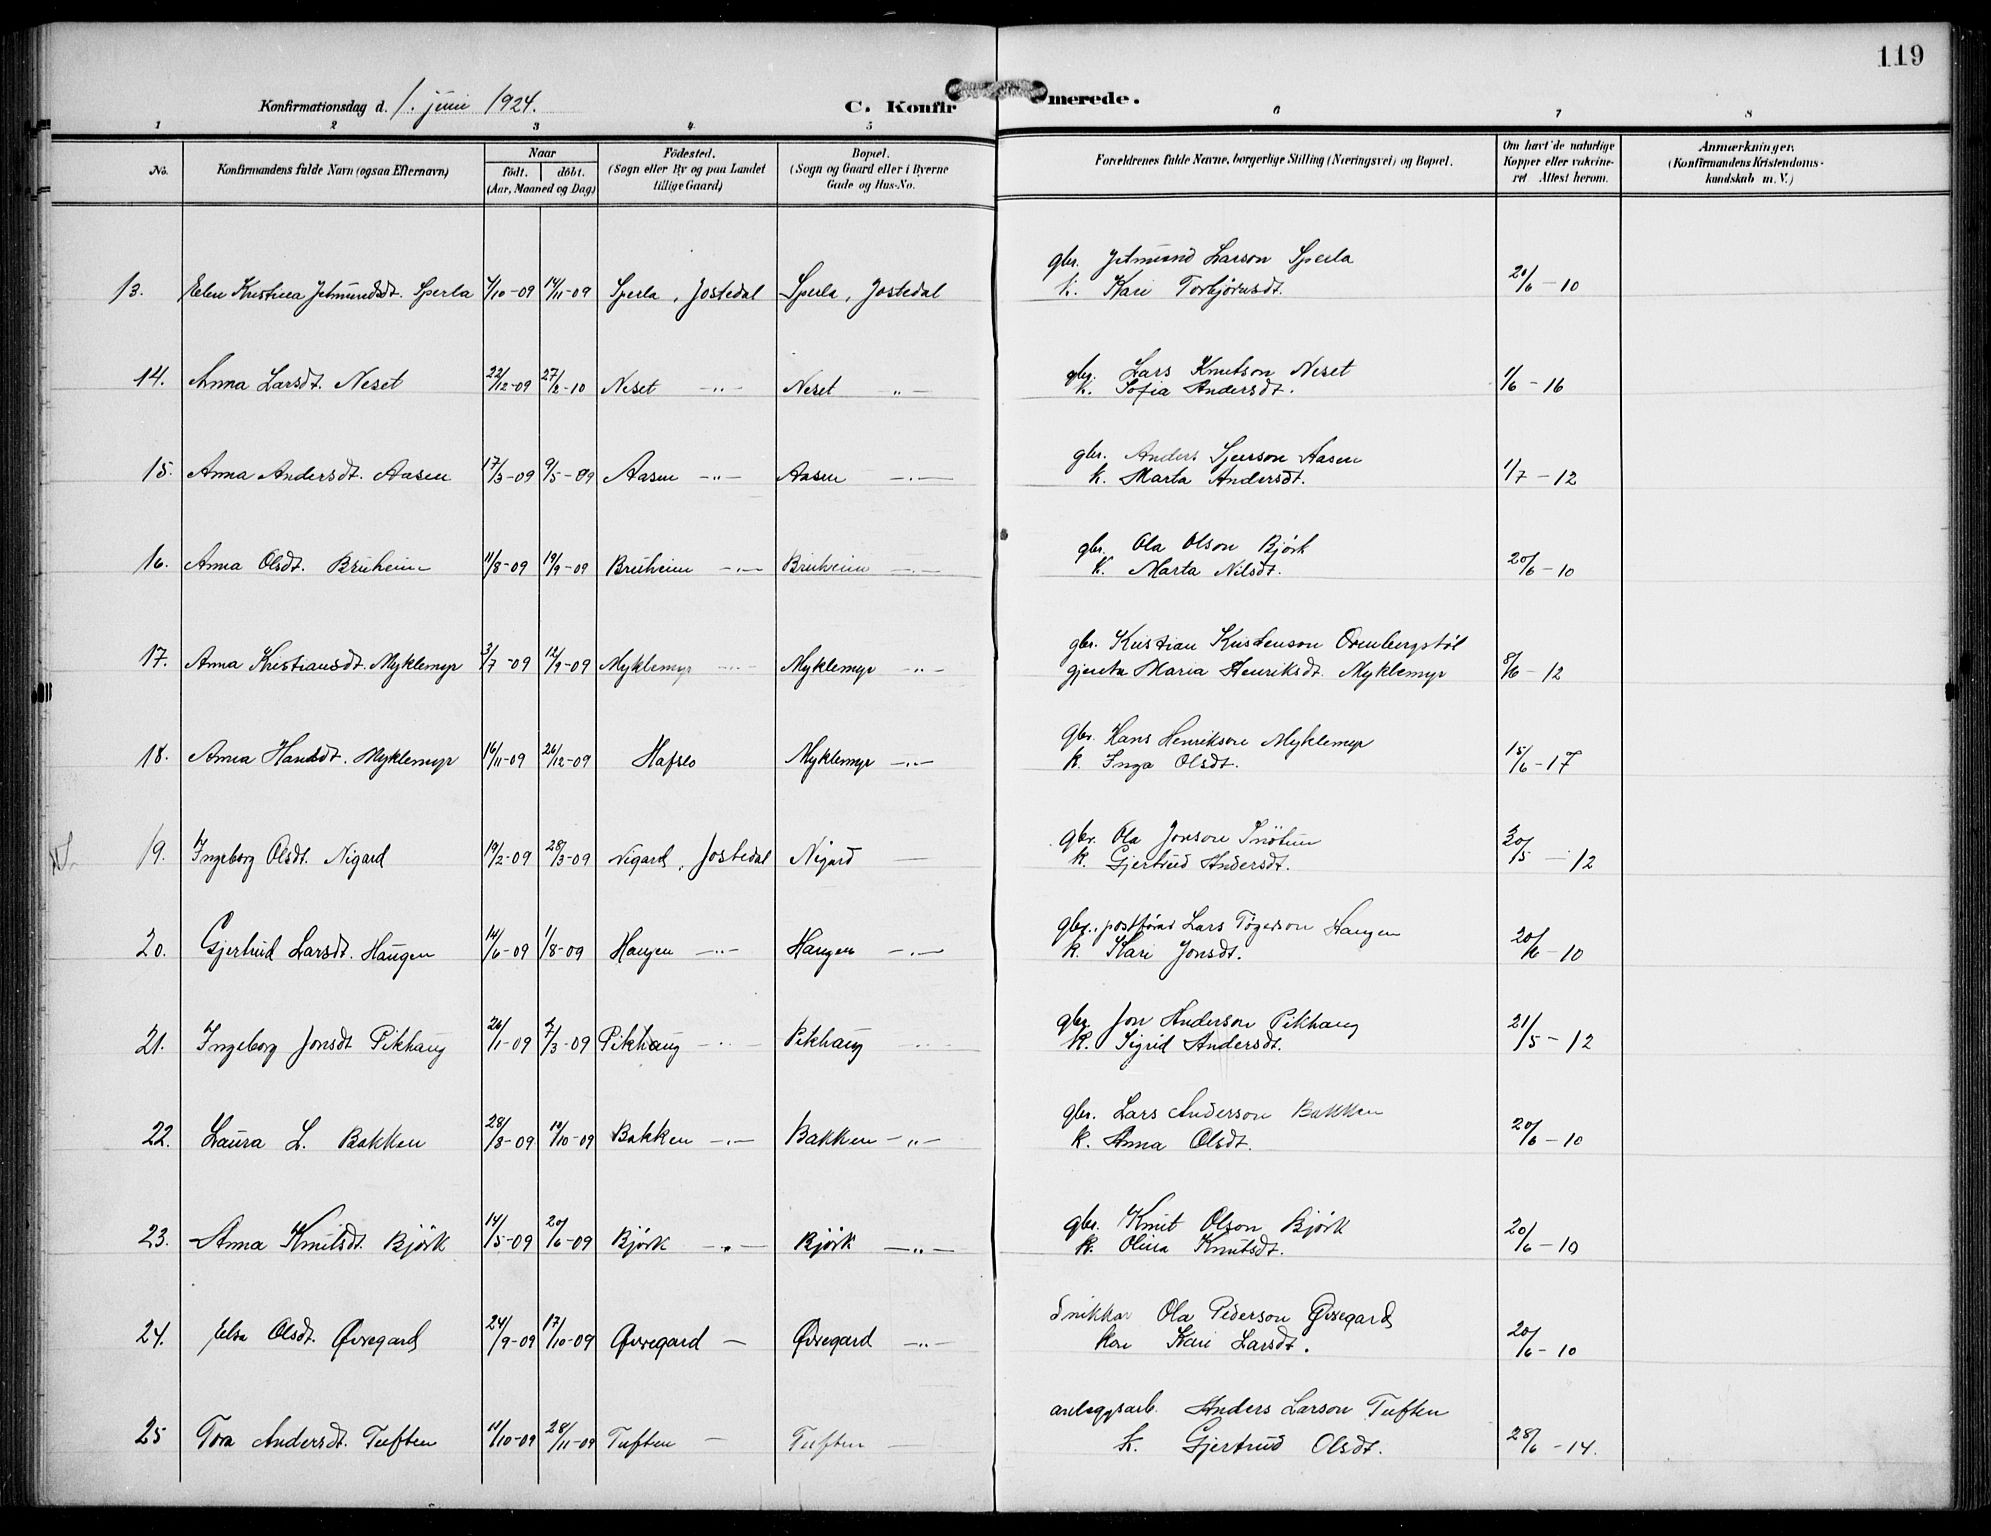 119
Konfirmationsdag d. 1. juni 1924. C. Konfirmerede.
1 2 3 4 5 6 7 8
No. Konfirmandens fulde Navn (ogsaa Efternavn) Naar født. døbt. (Aar, Maaned og Dag) Födested. (Sogn eller By og paa Landet tillige Gaard) Bopæl. (Sogn og Gaard eller i Byerne Gade og Hus-No. Forældrenes fulde Navne, borgerlige Stilling (Næringsvei) og Bopæl. Om havt de naturlige Kopper eller vakcineret Attest herom. Anmærkninger. (Konfirmandens Kristendomskundskab m. V.)
gbr. Jetmund Larson Sperla
13. Elen Kristina Jetmundsdt. Sperla 4/10-09 14/11-09 Sperla, Jostedal Sperla, Jostedal k. Kari Torbjørnsdt. 20/6-10
gbr. Lars Knutson Neset
14. Anna Larsdt. Neset 22/12-09 27/2-10 Neset -"- Neset "- k. Sofia Andersdt. 1/6-16
gbr. Anders Sjurson Aasen
15. Anna Andersdt. Aasen 17/3-09 9/5-09 Aasen -"- Aasen -.- k. Marta Andersdt. 1/7-12
gbr. Ola Olson Bjørk
16. Anna Olsdt. Bruheim 11/8-09 19/9-09 Bruheim -.- Bruheim -.- k. Marta Nilsdt. 20/6-10
gbr. Kristian Kristenson Ormbergstøl
17. Anna Kristiansdt. Myklemyr 3/7-09 12/9-09 Myklemyr -"- Myklemyr -"- gjenta Maria Henriksdt. Myklemyr 8/6-12
gbr. Hans Henrikson Myklemyr
18. Anna Hansdt. Myklemyr 16/11-09 26/12-09 Hafslo Myklemyr -.- k. Inga Olsdt. 15/6-17
gbr. Ola Jonson Snøtun
19. Ingeborg Olsdt. Nigard 19/2-09 28/3-09 Nigard, Jostedal Nigard — k. Gjertrud Andersdt. 30/5-12
gbr., postførar Lars Tøgerson Haugen
20. Gjertrud Larsdt. Haugen 14/6-09 1/8-09 Haugen -"- Haugen -.- k. Kari Jonsdt. 20/6-10
gbr. Jon Anderson Pikhaug
21. Ingeborg Jonsdt Pikhaug 26/1-09 7/3-09 Pikhaug -"- Pikhaug -"- k. Sigrid Andersdt. 21/5-12
gbr. Lars Anderson Bakken
22. Laura L. Bakken 28/8-09 10/10-09 Bakken -.- Bakken -"- k. Anna Olsdt. 20/6-10
gbr. Knut Olson Bjørk
23. Anna Knutsdt. Bjørk 14/5-09 20/6-09 Bjørk -"- Bjørk -"- k. Olina Knutsdt. 20/6-10
Snikkar Ola Pederson Øvregard
24. Elsa Olsdt. Øvregard 24/9-09 17/10-09 Øvregard — Øvregard -"- kone Kari Larsdt. 20/6-10
anleggsarb. Anders Larson Tuften
25 Tora Andersdt. Tuften 11/10-09 28/11-09 Tuften — Tuften — k. Gjertrud Olsdt. 28/6-14.